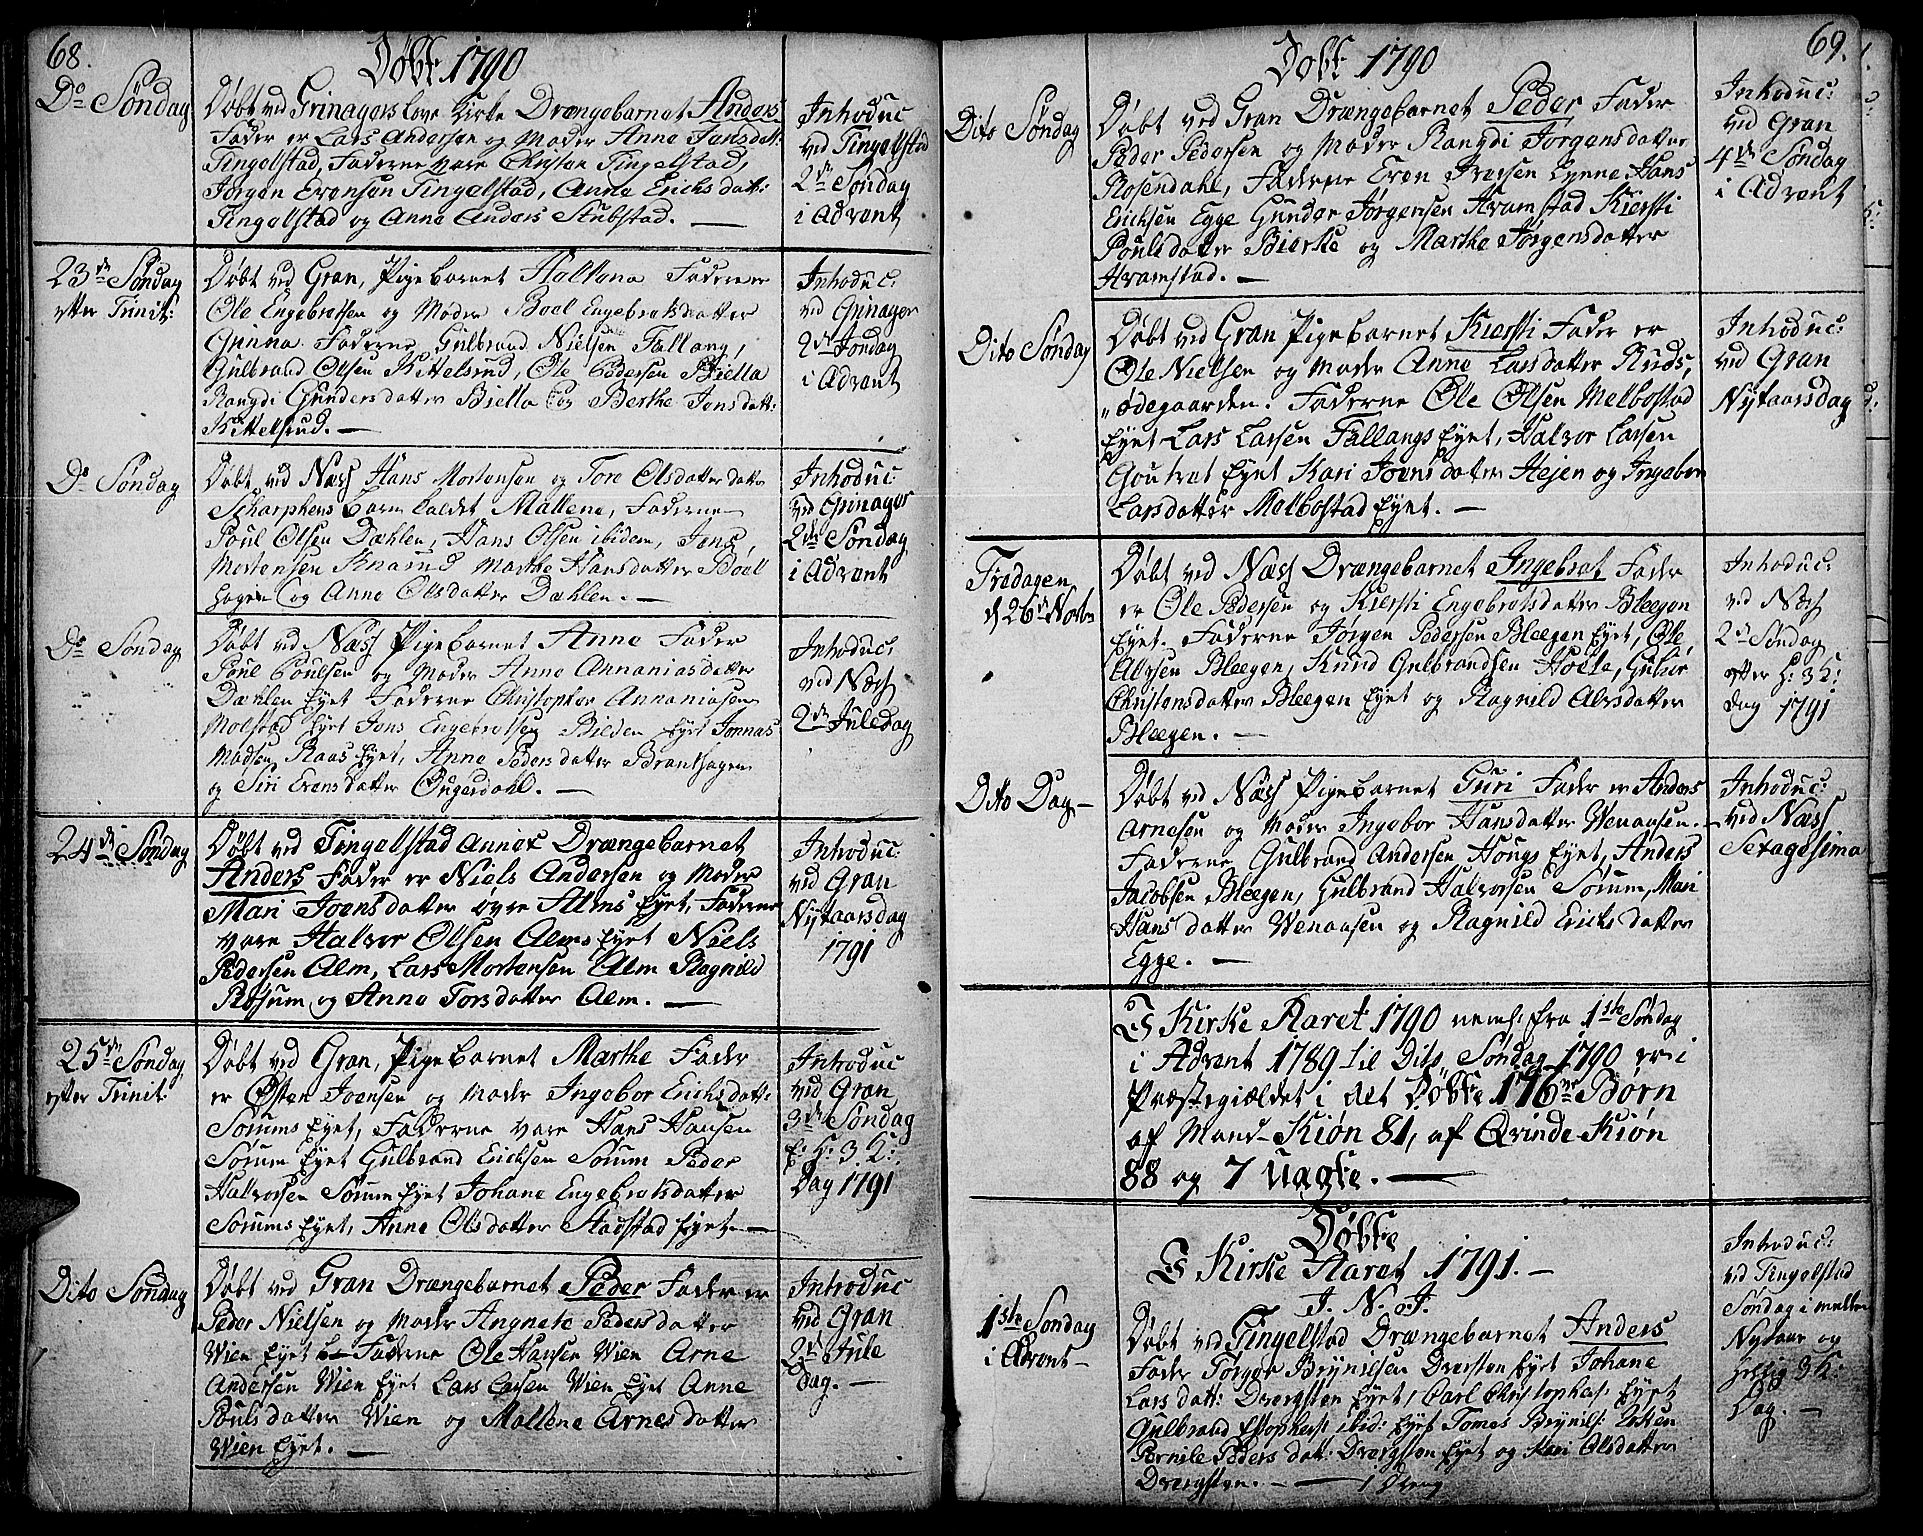 68.
Döbte 1790
Do Søndag
Döbt ved Grinagers love Kirke Drængebarnet Anders
Fader er Lars Andersen og Moder Anne Jansdatt:
Tingelstad, Fadderne vare Christen Tingelstad,
Jörgen Evensen Tingelstad, Anne Erichsdatt:
Tingelstad og Anne Anders Stubstad. —
Introduc
ved Tingelstad
2den Søndag
i Advent
23de Søndag
efter Trinit:
Döbt ved Gran, Pigebarnet Fader er
Ole Engebretsen og Moder Boel Engebretsdatter
Grinna. Fadderne, Gulbrand Nielsen Fallang,
Gulbrand Olsen Kittelsrud, Ole Pedersen Biella
Rangdi Gundersdatter Biella og Berthe Jonsdatt:
Kittelsrud. —
Introduc:
ved Grinager
2den Søndag
i Advent
Do Søndag
Döbt ved Næss Hans Mortensen og Tore Olsdatter datter
Scharphens Barn kaldet Mallene, Fadderne
Poul Olsen Dæhlen, Hans Olsen ibidem, Jens
Mortensen Knarud Marthe Hansdatter Boel
hagen og Anne Olsdatter Dæhlen. —
Introduc:
ved Grinager
2den Søndag
i Advent
Do Søndag
Döbt ved Næss Pigebarnet Anne Fader
Poul Poulsen og Moder Anne Annaniasdatter
Dæhlen Eyet Fadderne Christopher Annaniasen
Molstad Eyet Jens Engebretsen Bilden Eyet Jonnas
Madsen Raas Eyet, Anne Pedersdatter Branthagen
og Siri Evensdatter Ongerdahl. —
Introduc:
ved Næss
2den Juledag
24de Søndag
Döbt ved Tingelstad Annex Drængebarnet
Anders Fader er Niels Andersen og Moder
Mari Joensdatter øvre Alms Eyet, Fadderne
vare Halvor Olsen Alms Eyet Niels
Pedersen Alm, Lars Mortensen Alm Ragnild
Røsum og Anne Torsdatter Alm. —
Introduc:
ved Gran
Nytaarsdag
1791
25de Søndag
efter Trinit:
Döbt ved Gran, Pigebarnet Marthe Fader
er Østen Joensen og Moder Ingebor Erichsdatt:
Sørums Eyet, Fadderne vare Hans Hansen
Sørum Eyet Gulbrand Erichsen Sørum Peder
Halvorsen Sørum Eyet Johane Engebretsdatter
Sørums Eyet, Anne Olsdatter Stadstad Eyet. —
Introduc
ved Gran
3de Søndag
E: H: 3 K:
Dag 1791
Dito Søndag
Döbt ved Gran Drængebarnet Peder Fader er
Peder Nielsen og Moder Angnete Pedersdatter
Wien Eyet Fadderne Ole Hansen Wien Arne
Andersen Wien Eyet Lars Larsen Wien Eyet Anne
Poulsdatter Wien og Mallene Arnesdatter
Wien Eyet. —
Introduc
ved Gran
2den Jule
Dag. —
69.
Döbte 1790
Dito Søndag
Döbt ved Gran Drængebarnet Peder Fader
Peder Pedersen og Moder Rangdi Jörgensdatter
Rosendahl, Fadderne Even Iversen Lynne Hans
Erichsen Egge Gunder Jörgensen Hvamstad Kiersti
Poulsdatter Bierke og Marthe Jörgensdatter
Hvamstad. —
Introduc:
ved Gran
4de Søndag
i Advent
Dito Søndag
Döbt ved Gran Pigebarnet Kiersti Fader er
Ole Nielsen og Moder Anne Larsdatter Ruds,
„ødegaarden. Fadderne Ole Olsen Melbostad
Eyet Lars Larsen Fallangs Eyet, Halvor Larsen
Eyet Kari Joensdatter Hejen og Ingebor
Larsdatter Melbostad Eyet. —
Introduc:
ved Gran
Nytaarsdag
Fredagen
d 26de Novbr
Döbt ved Næss Drængebarnet Ingebret Fader
er Ole Pedersen og Kiersti Engebretsdatter Bleegen
Eyet. Fadderne Jörgen Pedersen Bleegen Eyet, Ole
Alvsen Bleegen, Knud Gulbrandsen Holte, Gulior
Christensdatter Bleegen Eyet og Ragnild Alvsdatter
Bleegen. —
Introduc:
ved Næss
2den Søndag
efter H: 3 K:
Dag 1791
Dito Dag —
Döbt ved Næss Pigebarnet Guri Fader er Anders
Arnesen og Moder Ingebor Hansdatter Wenaasen.
Fadderne Gulbrand Andersen Hougs Eyet, Anders
Jacobsen Bleegen, Gulbrand Halvorsen Sørum, Mari
Hansdatter Wenaasen og Ragnild Erichsdatter
Egge. —
Introduc:
ved Næss
Sexagesima
I Kirke Aaret 1790 neml: fra 1ste Søndag
i Advent 1789 til Dito Søndag 1790 er i
Præstegieldet i alt Döbte 176 Børn
af Mand-Kiøn 81, af Qvinde Kiøn
88 og 7 Uægte. —
Döbte
I Kirke Aaret 1791. —
I. N. J.
1ste Søndag
i Advent —
Döbt ved Tingelstad Drængebarnet Anders
Fader Torger Brynilsen Dvergsten Eyet Johane
Larsdatt: Dvergsten Eyet, Carl Christophers: Eyet
Gulbrand Christophers: ibid: Eyet Tomas Brynils:
Pernile Pedersdatt: Dvergsten Eyet og Kari Olsdatter
Dvergsten. — 1 Dreng
Introduc:
ved Tingelstad
Søndag i mellem
Nytaar og
hellig 3 K:
Dag. —